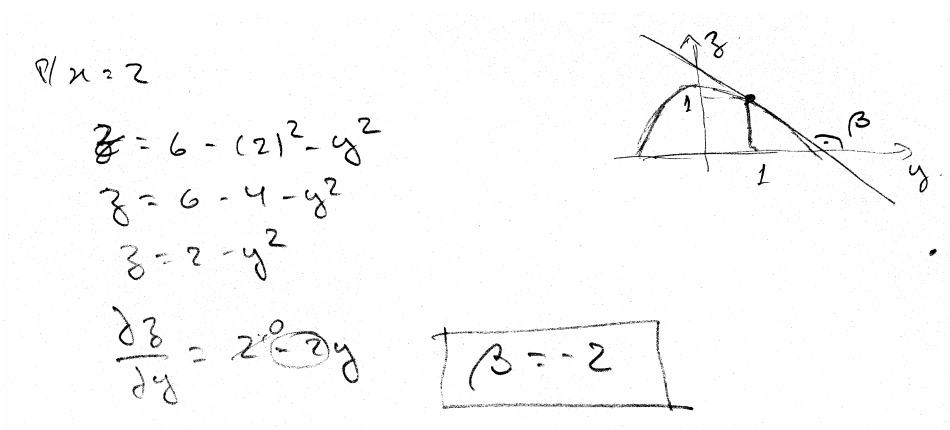 P/ x = 2
z = 6 - (2)² - y²
z = 6 - 4 - y²
z = 2 - y²
∂z/∂y = 2⁰ - 2y
β = -2
z
1
β
1
y